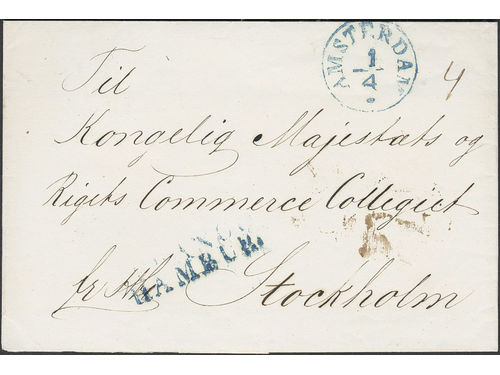 AMSTERDAM
1/4
4
Til
Kongelig Majestæts og
Rigets Commerce Collegiet
fr
HAMBURG
Stockholm